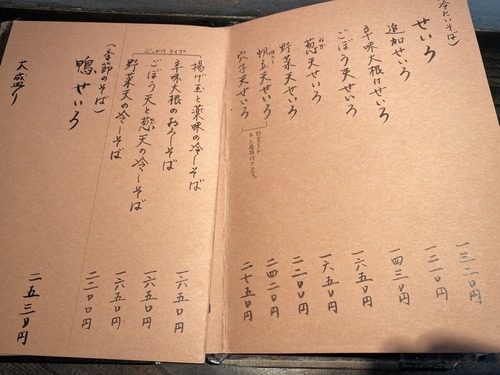 冷たいそば)
せいろ 一三二〇円
追加せいろ 一二一〇円
辛味大根せいろ 一四三〇円
ごぼう天せいろ 一六五〇円
葱天せいろ 一六五〇円
野菜天せいろ 二二〇〇円
帆立天せいろ 二四二〇円
穴子天せいろ 二七五〇円
ぶっかけタイプ
揚げ玉と薬味の冷しそば 一六五〇円
辛味大根のおろしそば 一六五〇円
ごぼう天と葱天の冷しそば 一六五〇円
野菜天の冷しそば 二二〇〇円
(季節のそば)
鴨せいろ 二五三〇円
大盛り